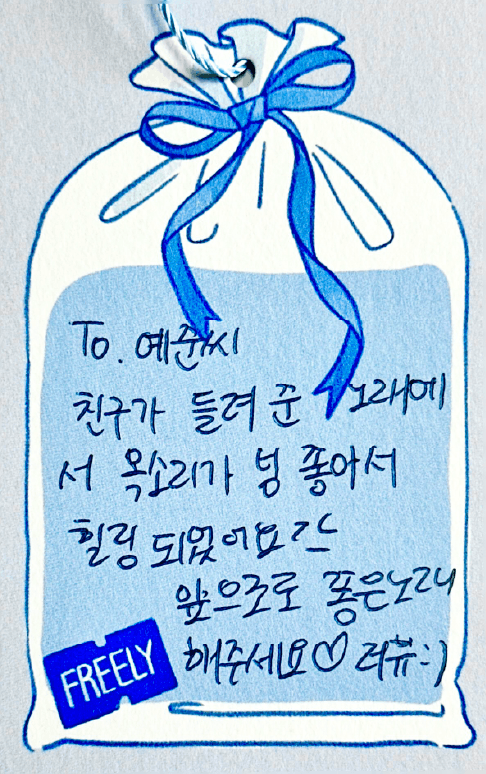 To. 예준씨
친구가 들려 준 노래에
서 목소리가 넘 좋아서
힐링 되었어요
앞으로도 좋은 노래
해주세요♡ 러뷰:)
FREELY